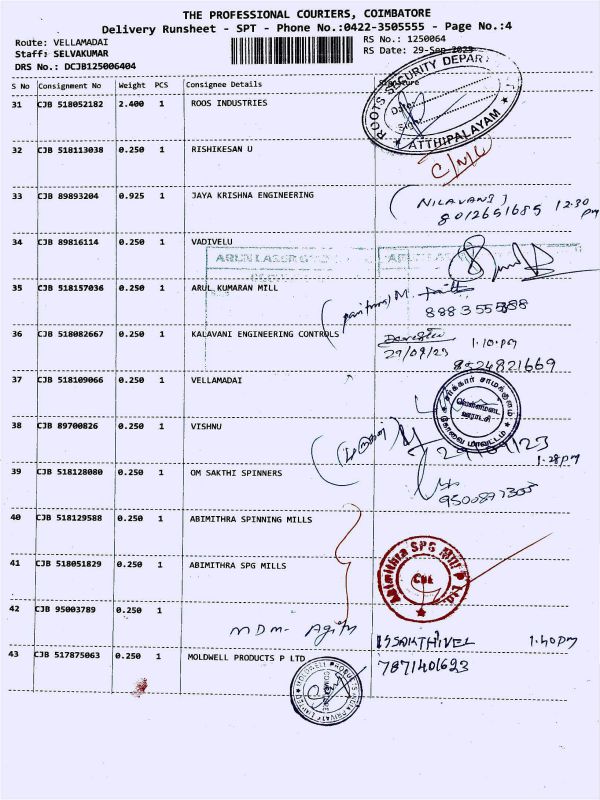 THE PROFESSIONAL COURIERS, COIMBATORE
Delivery Runsheet - SPT - Phone No.:0422-3505555 - Page No.:4
Route: VELLAMADAI RS No.: 1250064
Staff: SELVAKUMAR RS Date: 29-Sep-2023
DRS No.: DCJB125006404
S No Consignment No Weight PCS Consignee Details Signature
31 CJB 518052182 2.400 1 ROOS INDUSTRIES
ROOTS SECURITY DEPAR
Date:
Sign:
ATTHIPALAYAM
32 CJB 518113038 0.250 1 RISHIKESAN U
C/N/L
33 CJB 89893204 0.925 1 JAYA KRISHNA ENGINEERING
8012651685 12.30 pm
34 CJB 89816114 0.250 1 VADIVELU
35 CJB 518157036 0.250 1 ARUL KUMARAN MILL
36 CJB 518082667 0.250 1 KALAVANI ENGINEERING CONTROLS
1.10pm
29/09/23
8524821669
37 CJB 518109066 0.250 1 VELLAMADAI
38 CJB 89700826 0.250 1 VISHNU
29/09/23
1.28pm
39 CJB 518128080 0.250 1 OM SAKTHI SPINNERS
40 CJB 518129588 0.250 1 ABIMITHRA SPINNING MILLS
41 CJB 518051829 0.250 1 ABIMITHRA SPG MILLS
Abimithra SPG Mill P Ltd.
CBE
42 CJB 95003789 0.250 1
SAKTHIVEL 1.40pm
43 CJB 517875063 0.250 1 MOLDWELL PRODUCTS P LTD
7871401623